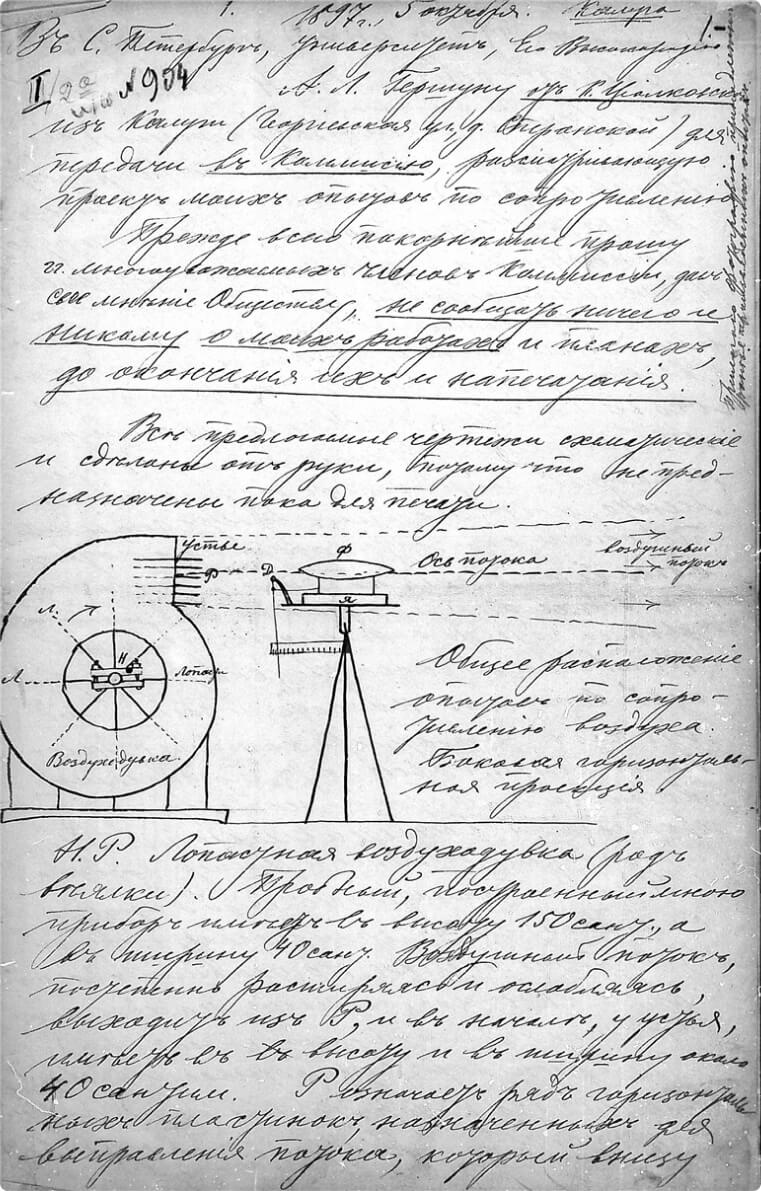 1.
1897 г., 5 октября. Калуга
1
Въ С. Петербургъ, университетъ, Его Высокородію
II № 904
А. Л. Гершуну отъ К. Ціолковскаго
изъ Калуги (Георгіевская ул., д. Сперанской) для
передачи въ Коммиссію, разсматривающую
проектъ моихъ опытовъ по сопротивленію
Прежде всего покорнѣйше прошу
гг. многоуважаемыхъ членовъ Коммиссіи, дать
свое мнѣніе Обществу, не сообщать ничего и
никому о моихъ работахъ и планахъ,
до окончанія ихъ и напечатанія.
Всѣ предлагаемые чертежи схематическіе
и сдѣланы отъ руки, потому что не пред-
назначены пока для печати.
Устье
Ф
Ось потока
воздушный
потокъ
Р
Д
Я
Л.
Н
Л
Лопасти
Воздуходувка
Общее расположеніе
опытовъ по сопро-
тивленію воздуха.
Боковая горизонталь-
ная проекція.
Н.Р. Лопастная воздуходувка (родъ
вѣялки). Пробный, построенный мною
приборъ имѣетъ въ высоту 150 сант., а
въ ширину 40 сант. Воздушный потокъ,
постепенно расширяясь и ослабляясь,
выходитъ изъ Р, и въ началѣ, у устья,
имѣетъ въ высоту и въ ширину около
40 сантим. Р означаетъ рядъ горизонталь-
ныхъ пластинокъ, назначенныхъ для
выправленія потока, который внизу